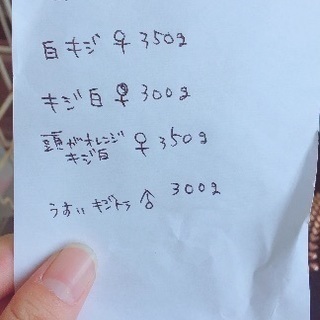 白キジ ♀ 350g
キジ白 ♀ 300g
頭がオレンジ ♀ 350g
キジ白
うすいキジトラ ♂ 300g